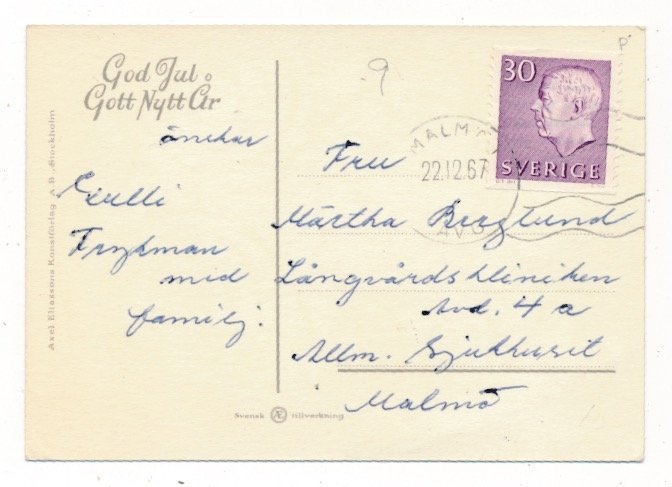 God Jul o
Gott Nytt År
önskar
Gulli
Frykman
med
familj.
9
P
30
SVERIGE
MALMÖ
22.12.67
AVG
Fru
Märtha Berglund
Långvårdskliniken
Avd. 4 a
Allm. Sjukhuset
Malmö
Axel Eliassons Konstförlag A.B., Stockholm
Svensk Æ tillverkning